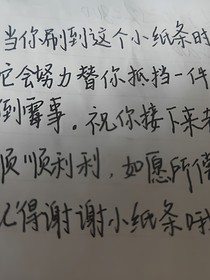 当你刷到这个小纸条时
它会努力替你抵挡一件
倒霉事。祝你接下来
顺顺利利，如愿所偿
记得谢谢小纸条哦